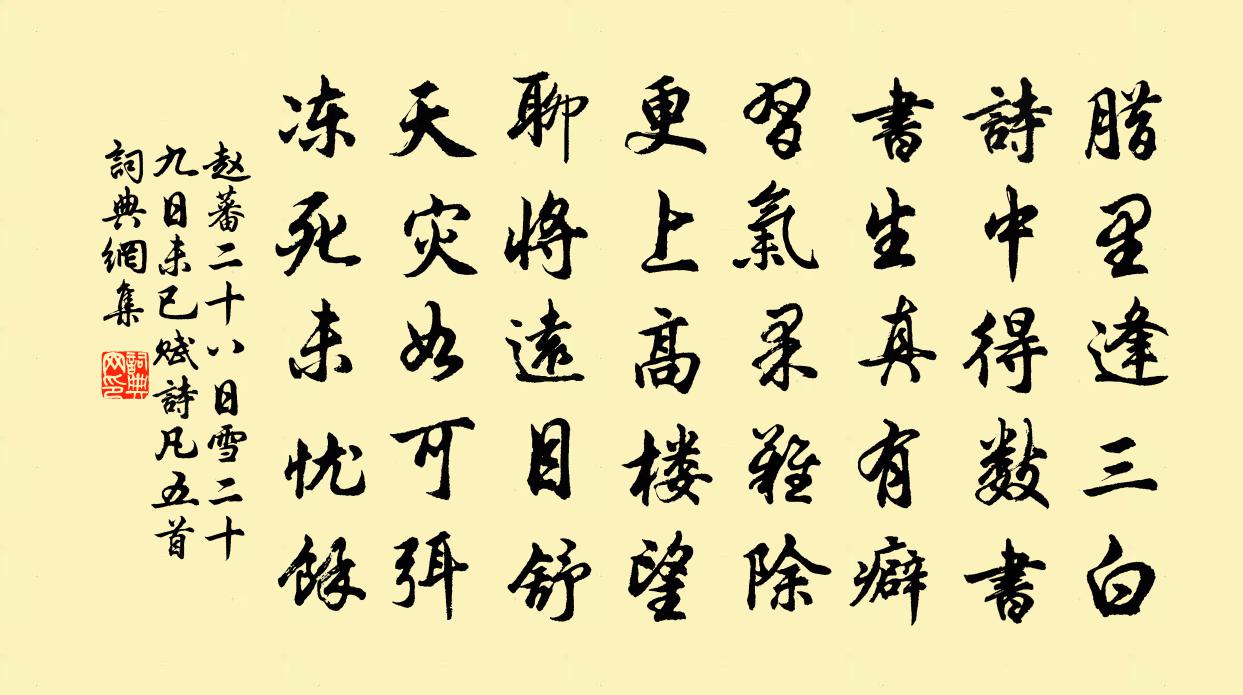 腊里逢三白
詩中得數書
書生真有癖
習氣果難除
更上高楼望
聊將遠目舒
天灾如可弭
冻死未忧餘
赵蕃二十八日雪二十
九日未已赋詩凡五首
詞典網集
詞典網印